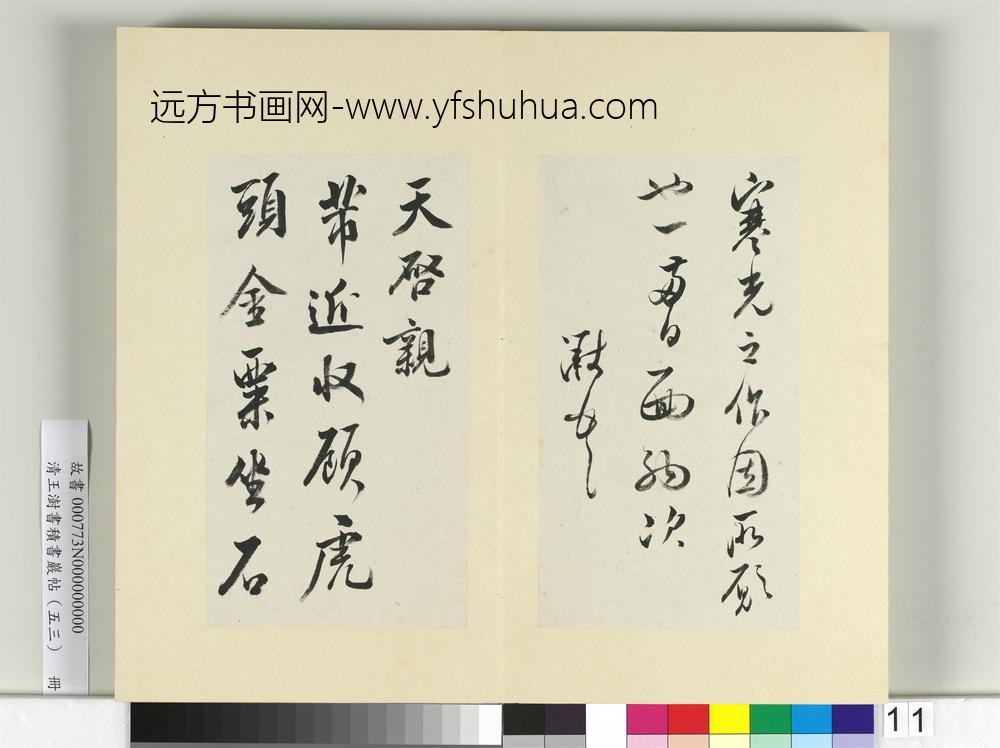 远方书画网-www.yfshuhua.com
寒光之作固所願
也一兩日面納次
獻末
天啓親
芾近收顧虎
頭金粟坐石
故書 000773N000000000
清王澍書積書巖帖(五三) 冊
11